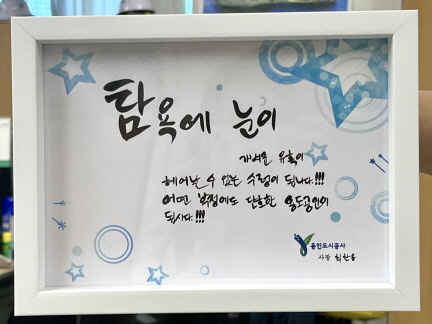 탐욕에 눈이
가벼운 유혹이
헤어날 수 없는 수렁이 됩니다!!!
어떤 부정에도 단호한 용도공인이
됩시다!!!
용인도시공사
사장